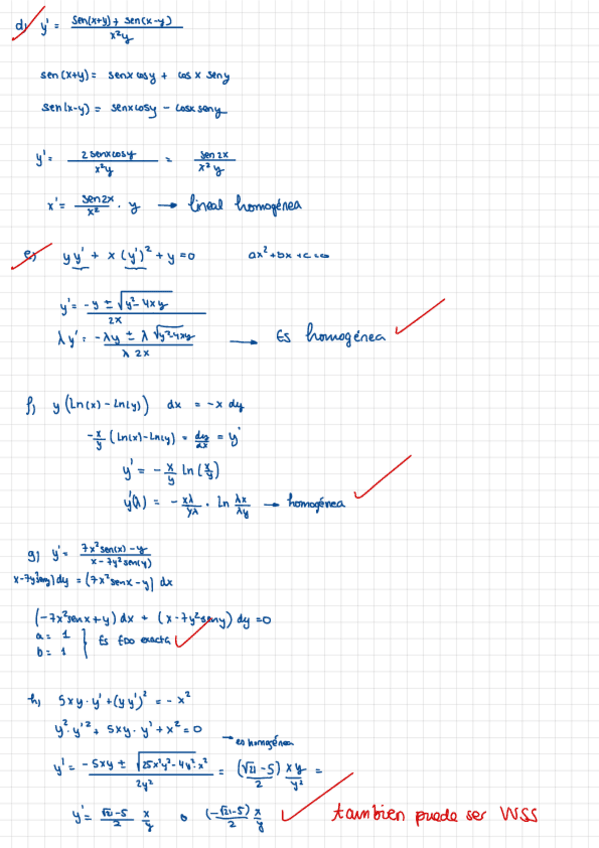 d) y' = (sen(x+y) + sen(x-y)) / x²y
sen(x+y) = senx cosy + cos x seny
sen(x-y) = senxcosy - cosx seny
y' = 2 senx cosy / x²y = sen 2x / x² y
x' = sen2x / x² · y → lineal homogénea
e) yy' + x (y')² + y = 0    ax²+bx+c=0
y' = (-y ± √(y²-4xy)) / 2x
λy' = (-λy ± λ√(y²-4xy)) / λ2x → Es homogénea
f) y (Ln(x) - Ln(y)) dx = -x dy
-x/y (Ln(x) - Ln(y)) = dy/dx = y'
y' = -x/y ln (x/y)
y'(λ) = -xλ/yλ · Ln λx/λy → homogénea
g) y' = (7x²sen(x) - y) / (x - 7y²sen(y))
x-7y²seny) dy = (7x²senx - y) dx
(-7x²senx + y) dx + (x-7y²seny) dy = 0
a = 1
b = 1 } Es EDO exacta
h) 5xy·y' + (yy')² = -x²
y²·y'² + 5xy·y' + x² = 0
→ es homogénea
y' = (-5xy ± √(25x²y²-4y²·x²)) / 2y² = (√21-5)/2 xy/y² =
y' = (√21-5)/2 x/y o (-√21-5)/2 x/y
tambien puede ser WSS